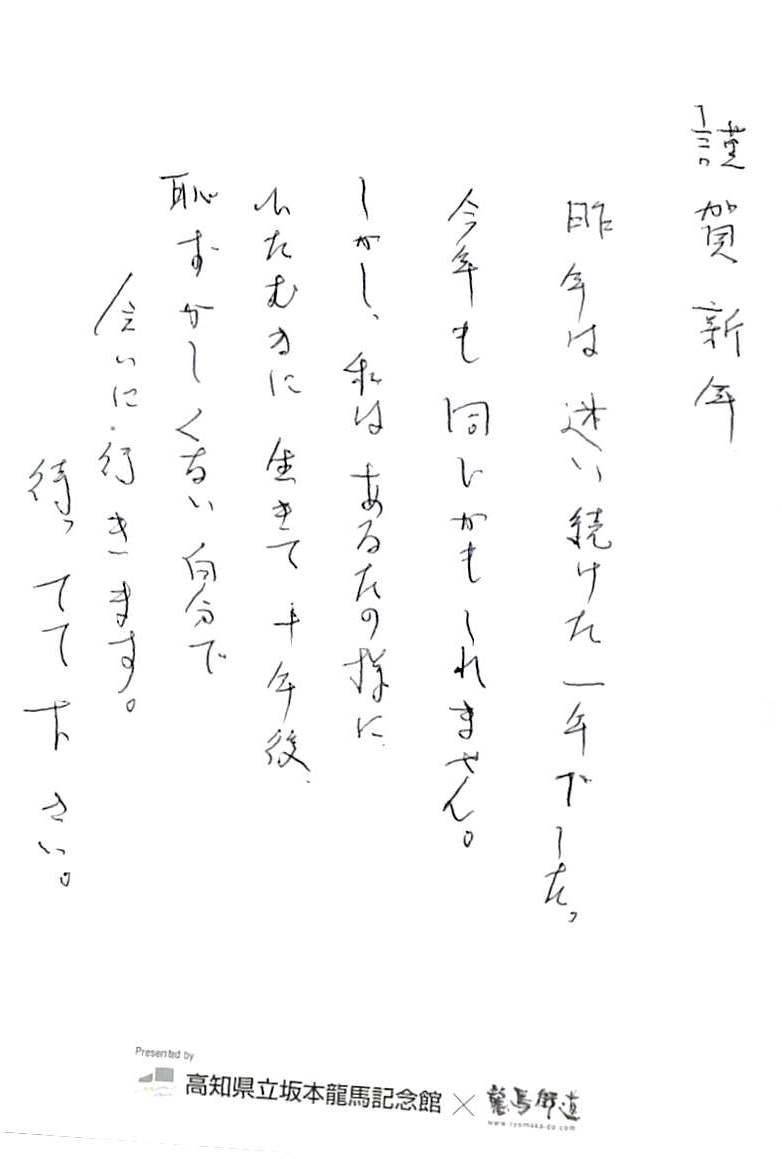 謹賀新年
昨年は迷い続けた一年でした。
今年も同じかもしれません。
しかし、私はあなたの様に
ひたむきに生きて十年後
恥ずかしくない自分で
会いに行きます。
待ってて下さい。
Presented by
高知県立坂本龍馬記念館×龍馬街道
www.ryomaka-do.com